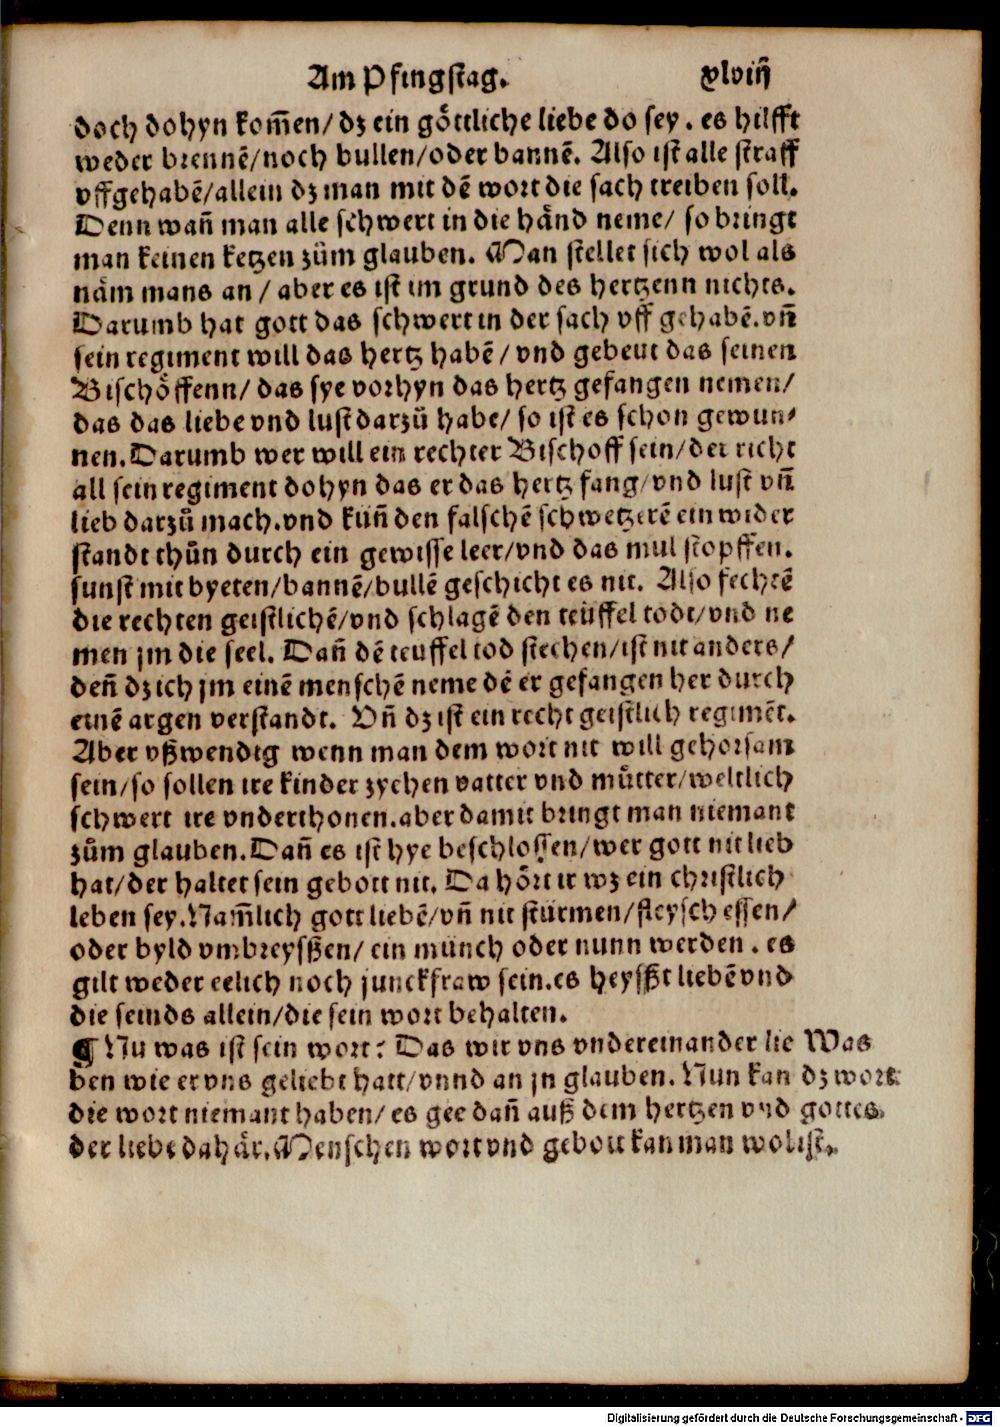 Am Pfingstag. xlviij
doch dohyn kom̃en/ dz ein göttliche liebe do sey. es hilfft
weder brennẽ/noch bullen/oder bannẽ. Also ist alle straff
vffgehabẽ/allein dz man mit dẽ wort die sach treiben soll.
Denn wañ man alle schwert in die händ neme/ so bringt
man keinen ketzen zům glauben. Man stellet sich wol als
näm mans an / aber es ist im grund des hertzenn nichts.
Darumb hat gott das schwert in der sach vff gehabẽ.vñ
sein regiment will das hertz habẽ / vnd gebeut das seinen
Bischöffenn/ das sye vorhyn das hertz gefangen nemen/
das das liebe vnd lust darzů habe/ so ist es schon gewun⸗
nen.Darumb wer will ein rechter Bischoff sein/der richt
all sein regiment dohyn das er das hertz fang/vnd lust vñ
lieb darzů mach.vnd küñ den falschẽ schwetzerẽ ein wider
standt thůn durch ein gewisse leer/vnd das mul stopffen.
sunst mit byeten/bannẽ/bullẽ geschicht es nit. Also fechtẽ
die rechten geistlichẽ/vnd schlagẽ den teüffel todt/vnd ne
men jm die seel. Dañ dẽ teuffel tod stechen/ist nit anders/
deñ dz ich jm einẽ menschẽ neme dẽ er gefangen her durch
einẽ argen verstandt. Vñ dz ist ein recht geistlich regimẽt.
Aber vßwendig wenn man dem wort nit will gehorsam
sein/so sollen ire kinder zychen vatter vnd můtter/weltlich
schwert ire vnderthonen.aber damit bringt man niemant
zům glauben.Dañ es ist hye beschlossen/wer gott nit lieb
hat/der haltet sein gebott nit. Da hört ir wz ein christlich
leben sey.Nam̃lich gott liebẽ/vñ nit stürmen/fleysch essen/
oder byld vmbreysßen/ ein münch oder nunn werden. es
gilt weder eelich noch junckfraw sein.es heysßt liebẽ vnd
die seinds allein/die sein wort behalten.
¶ Nu was ist sein wort: Das wir vns vndereinander lie Was
ben wie er vns geliebt hatt/vnnd an jn glauben. Nun kan dz wort
die wort niemant haben/ es gee dañ auß dem hertzen vnd gottes
der liebe dahär.Menschen wort vnd gebott kan man wol ist.
Digitalisierung gefördert durch die Deutsche Forschungsgemeinschaft - DFG